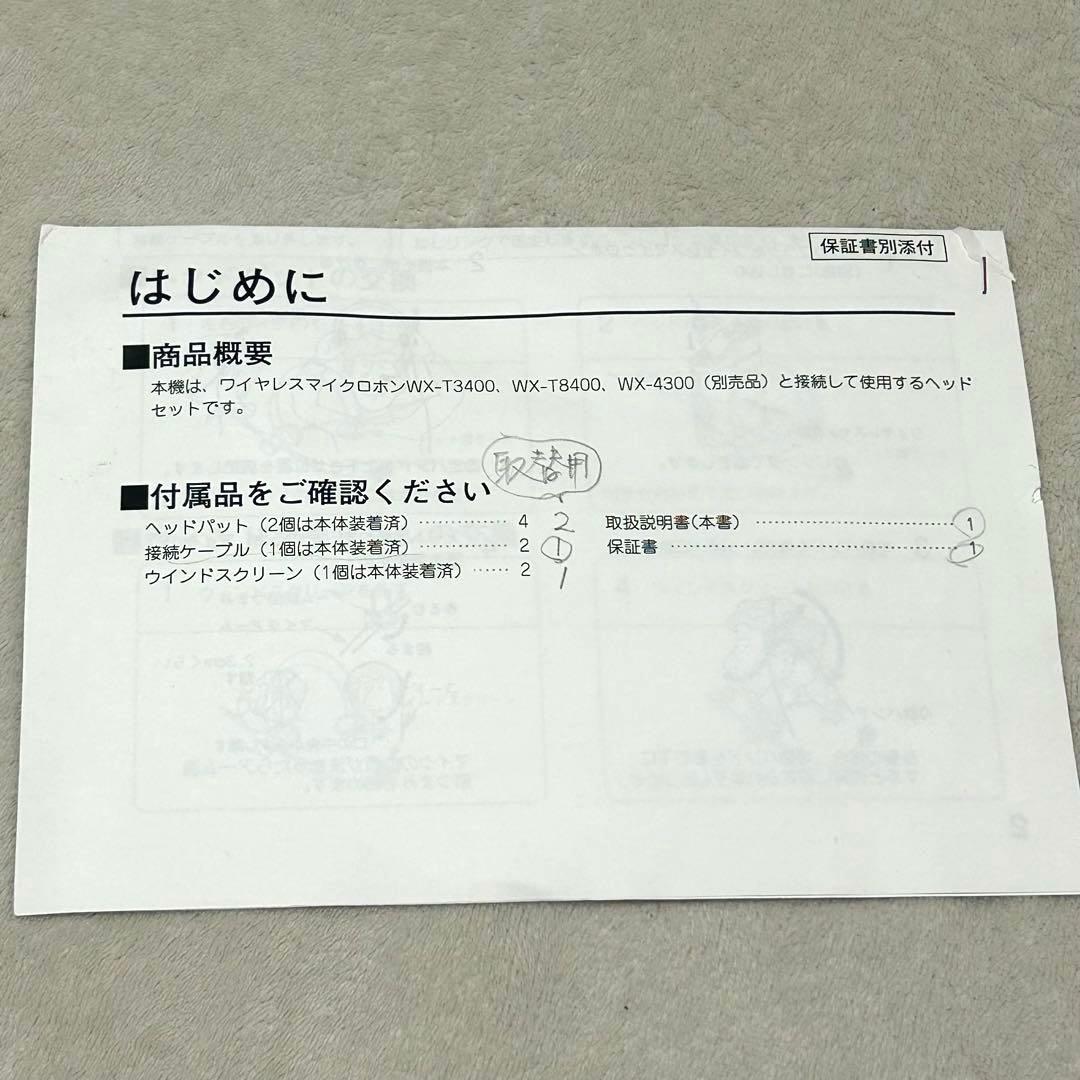 保証書別添付
はじめに
■商品概要
本機は、ワイヤレスマイクロホンWX-T3400、WX-T8400、WX-4300(別売品)と接続して使用するヘッド
セットです。
取替用
■付属品をご確認ください
ヘッドパット(2個は本体装着済) ‥‥‥‥‥‥ 4 2
接続ケーブル(1個は本体装着済) ‥‥‥‥‥‥ 2 1
ウインドスクリーン(1個は本体装着済) ‥‥‥ 2 1
取扱説明書(本書) ‥‥‥‥‥‥‥‥‥‥‥‥‥ 1
保証書 ‥‥‥‥‥‥‥‥‥‥‥‥‥‥‥‥‥‥ 1
2